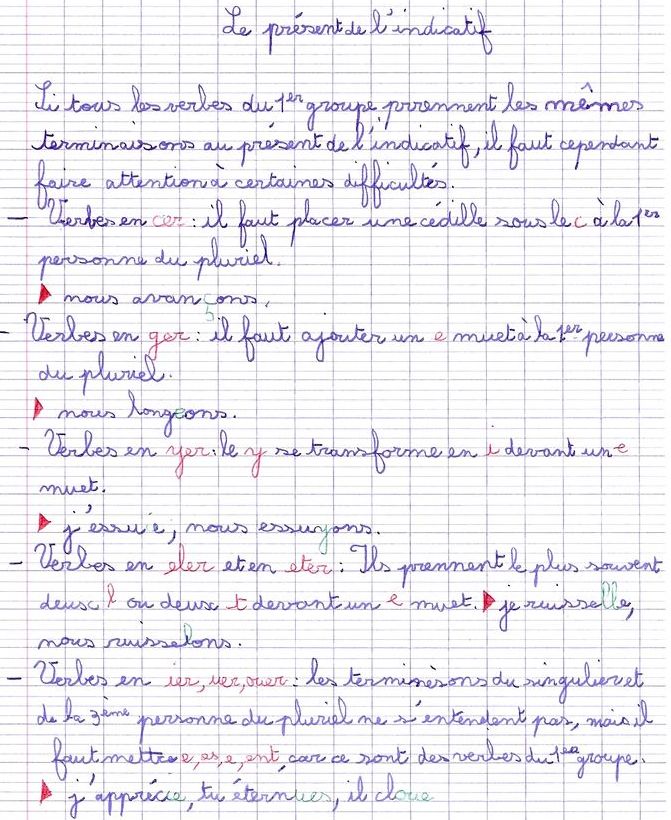 Le présent de l'indicatif
Si tous les verbes du 1er groupe prennent les mêmes
terminaisons au présent de l'indicatif, il faut cependant
faire attention à certaines difficultés.
- Verbes en cer : il faut placer une cédille sous le c à la 1er
personne du pluriel.
▶ nous avançons.
- Verbes en ger : il faut ajouter un e muet à la 1er personne
du pluriel.
▶ nous longeons.
- Verbes en yer : le y se transforme en i devant un e
muet.
▶ j'essuie, nous essuyons.
- Verbes en eler et en eter : Ils prennent le plus souvent
deux l ou deux t devant un e muet. ▶ je ruisselle,
nous ruisselons.
- Verbes en ier, uer, ouer : les terminèsons du singulier et
de la 3ème personne du pluriel ne s'entendent pas, mais il
faut mettre e, es, e, ent, car ce sont des verbes du 1er groupe.
▶ j'apprécie, tu éternues, il cloue